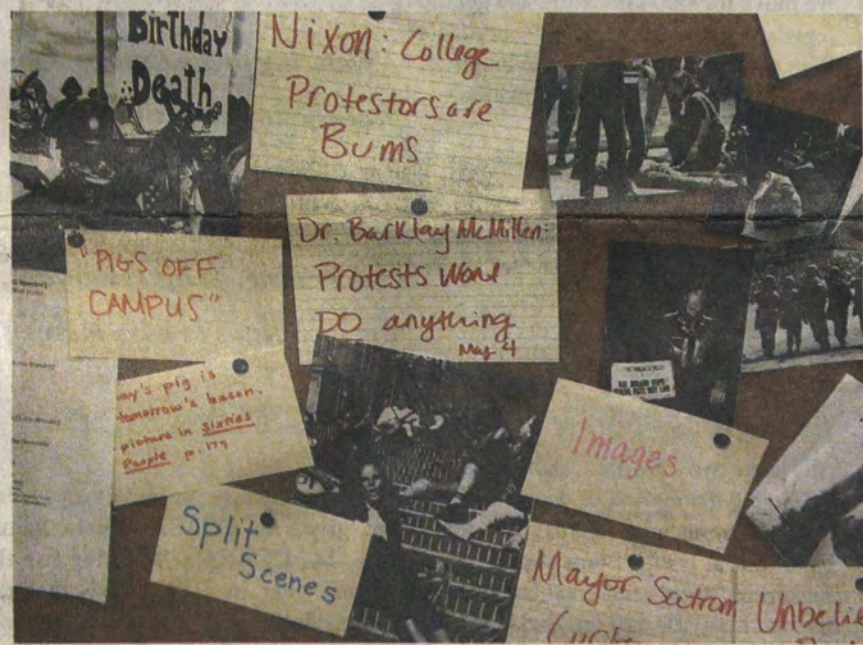 Birthday
Death
Nixon: College
Protestors are
Bums
"PIGS OFF
CAMPUS"
Dr. Barklay McMillen:
Protests wont
DO anything
May 4
pig is
tomorrow's bacon.
picture in Sixties
People p. 179
Split
Scenes
Images
Mayor Satrom